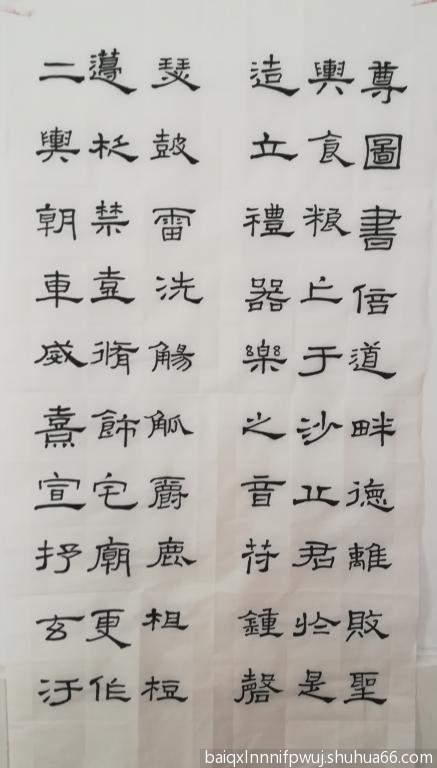 尊圖書倍道畔德離敗聖
輿食粮亡于沙丘君於是
造立禮器樂之音苻鍾磬
瑟鼓雷洗觴觚爵鹿柤梪
籩柉禁壺脩飾宅廟更作
二輿朝車威熹宣抒玄汙
baiqxlnnnifpwuj.shuhua66.com